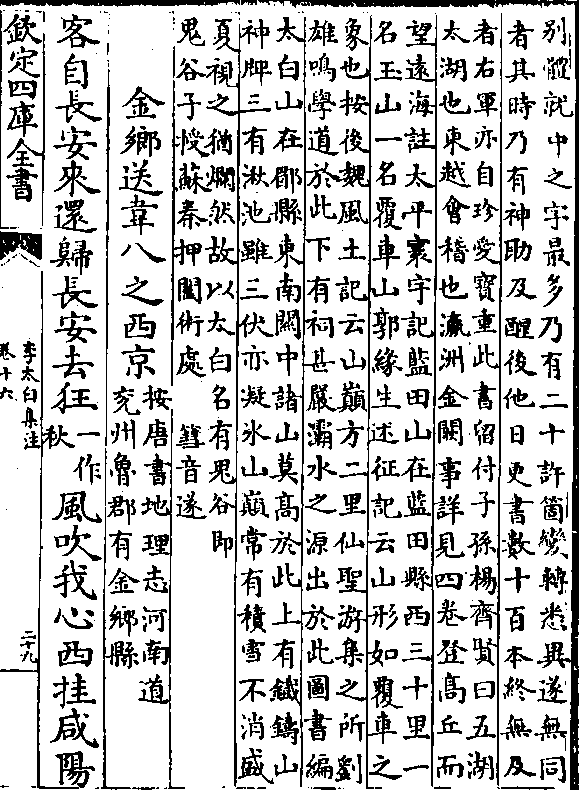 别體就中之字最多乃有二十許箇變轉悉異遂無同
者其時乃有神助及醒後他日更書數十百本終無及
者右軍亦自珍愛寳重此書留付子孫楊齊賢曰五湖
太湖也東越會稽也瀛洲金闕事詳見四卷登髙丘而
望逺海註太平寰宇記藍田山在藍田縣西三十里一
名玉山一名覆車山郭緣生述征記云山形如覆車之
象也按後魏風土記云山巔方二里仙聖游集之所劉
雄鳴學道於此下有祠甚嚴灞水之源出於此圖書編
太白山在郿縣東南闗中諸山莫髙於此上有鐵鑄山
神牌三有湫池雖三伏亦凝氷山巔常有積雪不消盛
夏視之猶爛然故以太白名有鬼谷即
鬼谷子授蘇秦押闔術處 篲音遂
金鄉送韋八之西京
按唐書地理志河南道
兖州魯郡有金鄉縣
客自長安來還歸長安去狂
一作
秋
風吹我心西挂咸陽
欽定四庫全書
李太白集注
卷十六
二十九